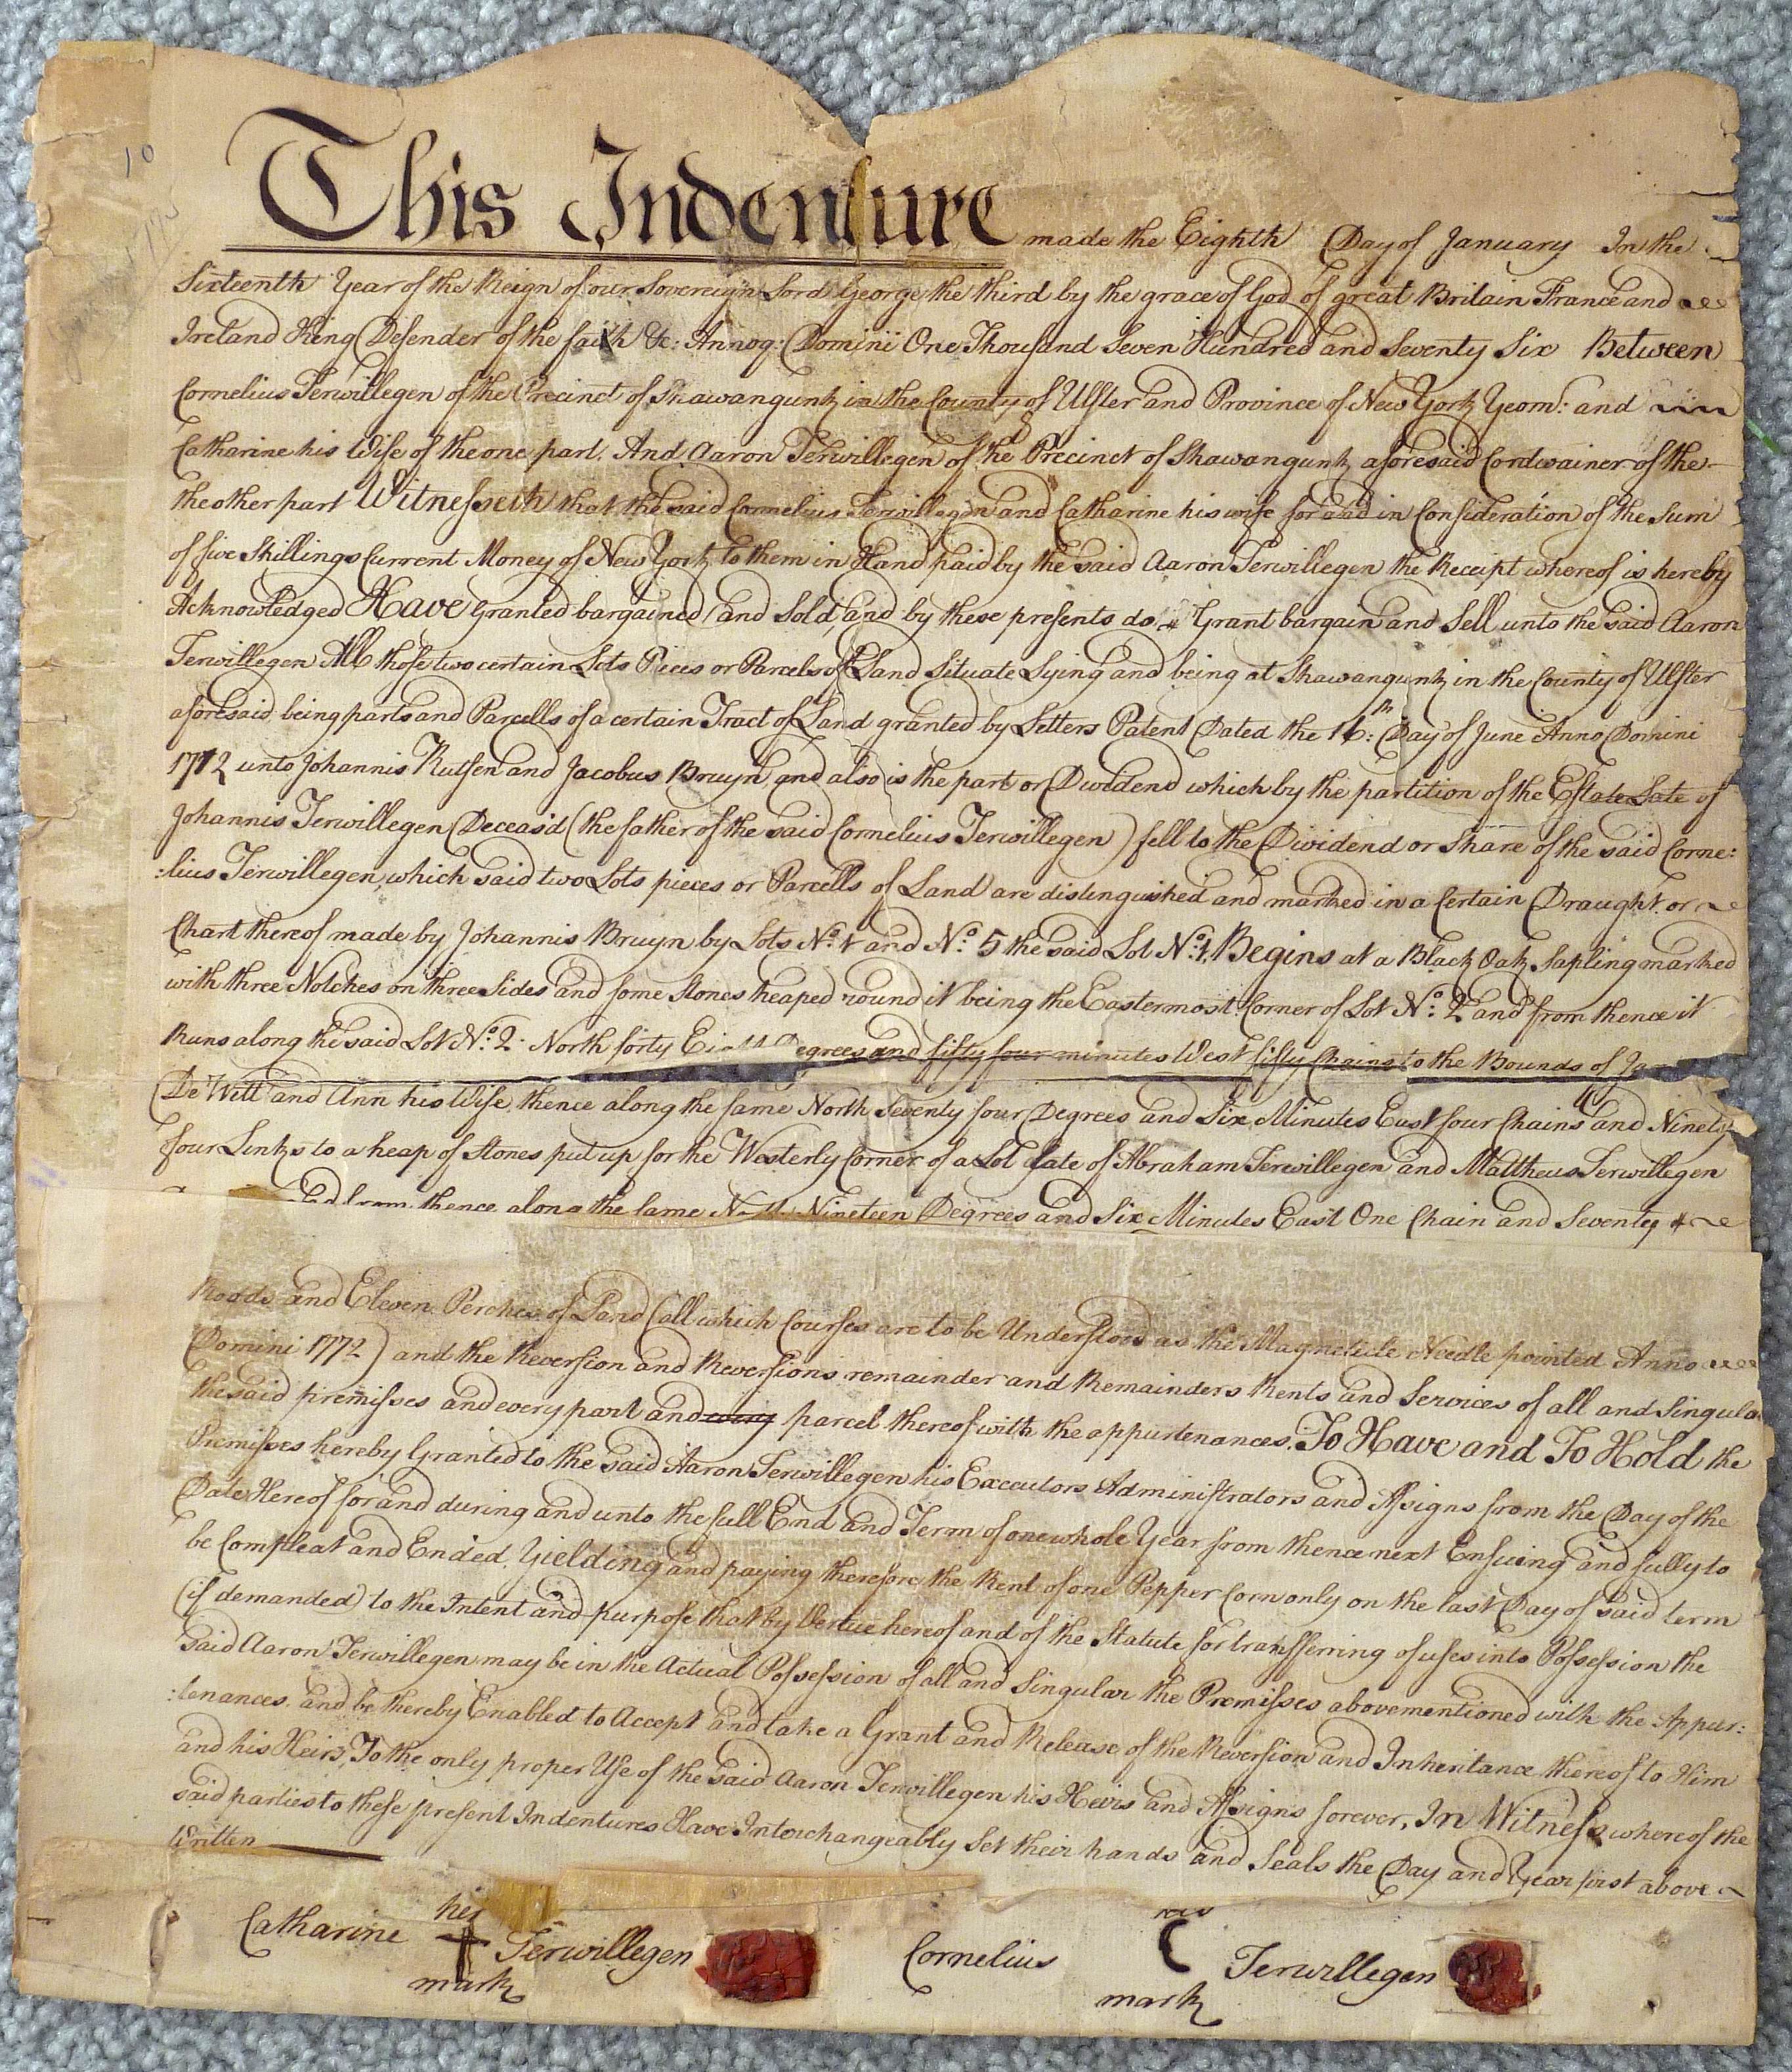 10
This Indenture made the Eighth Day of January In the
Sixteenth Year of the Reign of our Sovereign Lord George the third by the grace of God of great Britain France and
Ireland King Defender of the faith &c: Annoq: Domini One Thousand Seven Hundred and Seventy Six Between
Cornelius Terwillegen of the Precinct of Shawangunk in the County of Ulster and Province of New York Yeom: and
Catharine his Wife of the one part, And Aaron Terwillegen of the Precinct of Shawangunk aforesaid Cordwainer of the
the other part Witnesseth that the said Cornelius Terwillegen and Catharine his wife for and in Consideration of the Sum
of five Shillings Current Money of New York to them in Hand paid by the said Aaron Terwillegen the Receipt whereof is hereby
Acknowledged Have Granted bargained and Sold, and by these presents do Grant bargain and Sell unto the said Aaron
Terwillegen All those two certain Lots Pieces or Parcels of Land Situate Lying and being at Shawangunk in the County of Ulster
aforesaid being parts and Parcells of a certain Tract of Land granted by Letters Patent Dated the 16th: Day of June Anno Domini
1712 unto Johannis Rutsen and Jacobus Bruyn and also is the part or Dividend which by the partition of the Estate Late of
Johannis Terwillegen Deceas'd (the father of the said Cornelius Terwillegen) fell to the Dividend or Share of the said Corne:
:lius Terwillegen, which said two Lots pieces or Parcells of Land are distinguished and marked in a Certain Draught or
Chart thereof made by Johannis Bruyn by Lots No: 1 and No: 5 the said Lot No: 1, Begins at a Black Oak Sapling marked
with three Notches on three Sides and some Stones heaped round it being the Eastermost Corner of Lot No: 2 and from thence it
Runs along the said Lot No: 2 North forty Eight Degrees and fifty four minutes West fifty Chains to the Bounds of
De Witt and Ann his Wife, thence along the same North Seventy four Degrees and Six Minutes East four Chains and Ninety
four Links to a heap of Stones put up for the Westerly Corner of a Lot Late of Abraham Terwillegen and Mattheus Terwillegen
from thence along the same North Nineteen Degrees and Six Minutes East One Chain and Seventy
Roods and Eleven Perches of Land (all which Courses are to be Understood as the Magnetick Needle pointed Anno
Domini 1772) and the Reversion and Reversions remainder and Remainders Rents and Services of all and Singula
the said premisses and every part and every parcel thereof with the appurtenances. To Have and To Hold the
Premisses hereby Granted to the said Aaron Terwillegen his Executors Administrators and Assigns from the Day of the
Date Hereof for and during and unto the full End and Term of one whole Year from thence next Ensuing and fully to
be Compleat and Ended, Yielding and paying therefore the Rent of one Pepper Corn only on the last Day of said term
(if demanded) to the Intent and purpose that by Vertue hereof and of the Statute for transferring of uses into Possession the
said Aaron Terwillegen may be in the Actual Possession of all and Singular the Premisses abovementioned with the Appur:
:tenances. and be thereby Enabled to Accept and take a Grant and Release of the Reversion and Inheritance thereof to Him
and his Heirs, To the only proper Use of the said Aaron Terwillegen his Heirs and Assigns forever, In Witness whereof the
said parties to these present Indentures Have Interchangeably Set their hands and Seals the Day and Year first above
Written
Catharine her mark Terwillegen Cornelius C mark Terwillegen